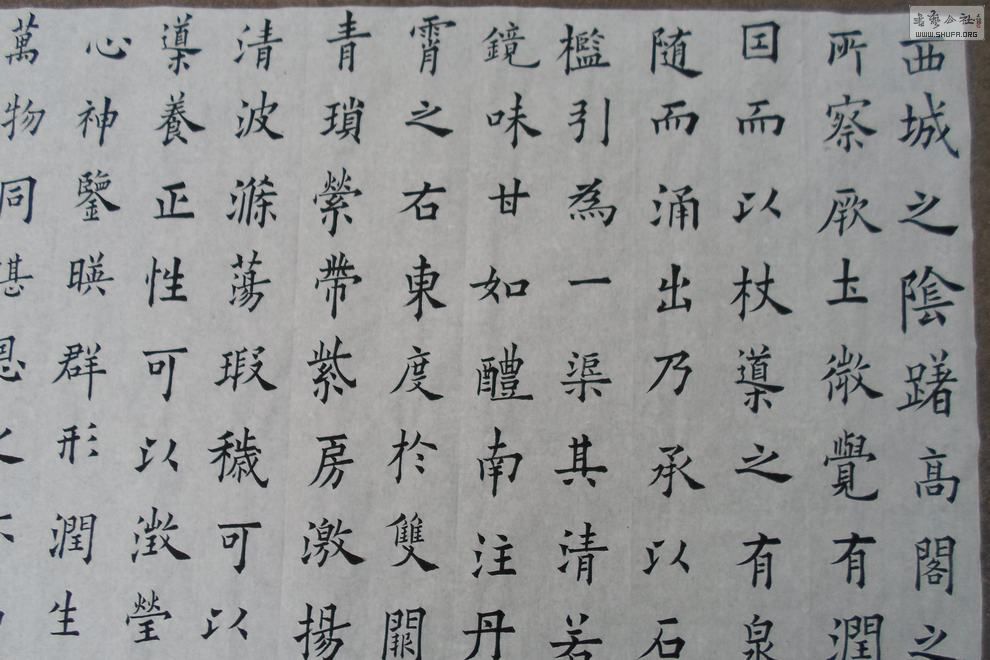 西城之陰躇高閣之
所察厥土微覺有潤
因而以杖導之有泉
随而涌出乃承以石
檻引為一渠其清若
鏡味甘如醴南注丹
霄之右東度於雙闕
青瑣縈帶紫房激揚
清波滌蕩瑕穢可以
導養正性可以澂瑩
心神鑒暎群形潤生
萬物同湛恩之不
WWW.SHUFA.ORG